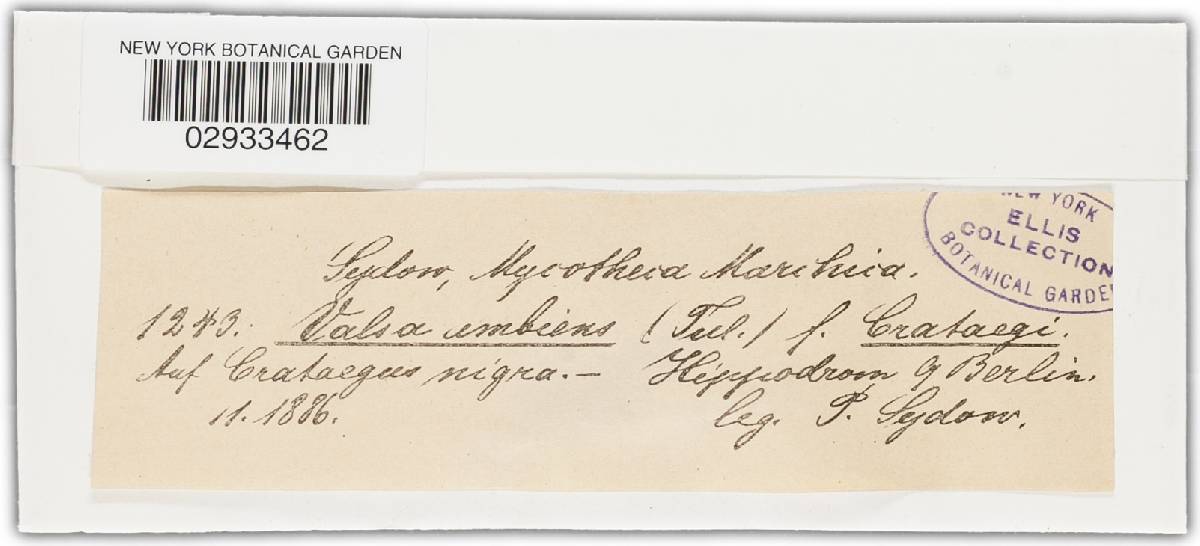 NEW YORK BOTANICAL GARDEN
02933462
NEW YORK
ELLIS
COLLECTION
BOTANICAL GARDEN
Sydow, Mycotheca Marchica.
1243. Valsa ambiens (Tul.) f. Crataegi.
Auf Crataegus nigra. — Hippodrom b Berlin.
11. 1886. leg. P. Sydow.